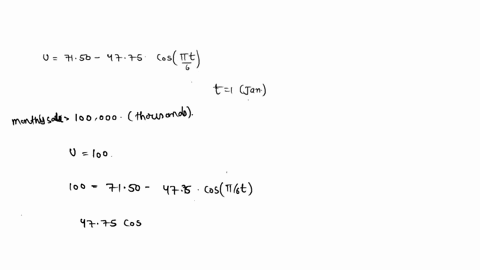 U = 71.50 - 47.75 · cos(πt/6)
t=1 (Jan.)
monthly sale> 100,000 · (thousands).
U = 100.
100 = 71.50 - 47.75 · cos(π/6t)
47.75 cos